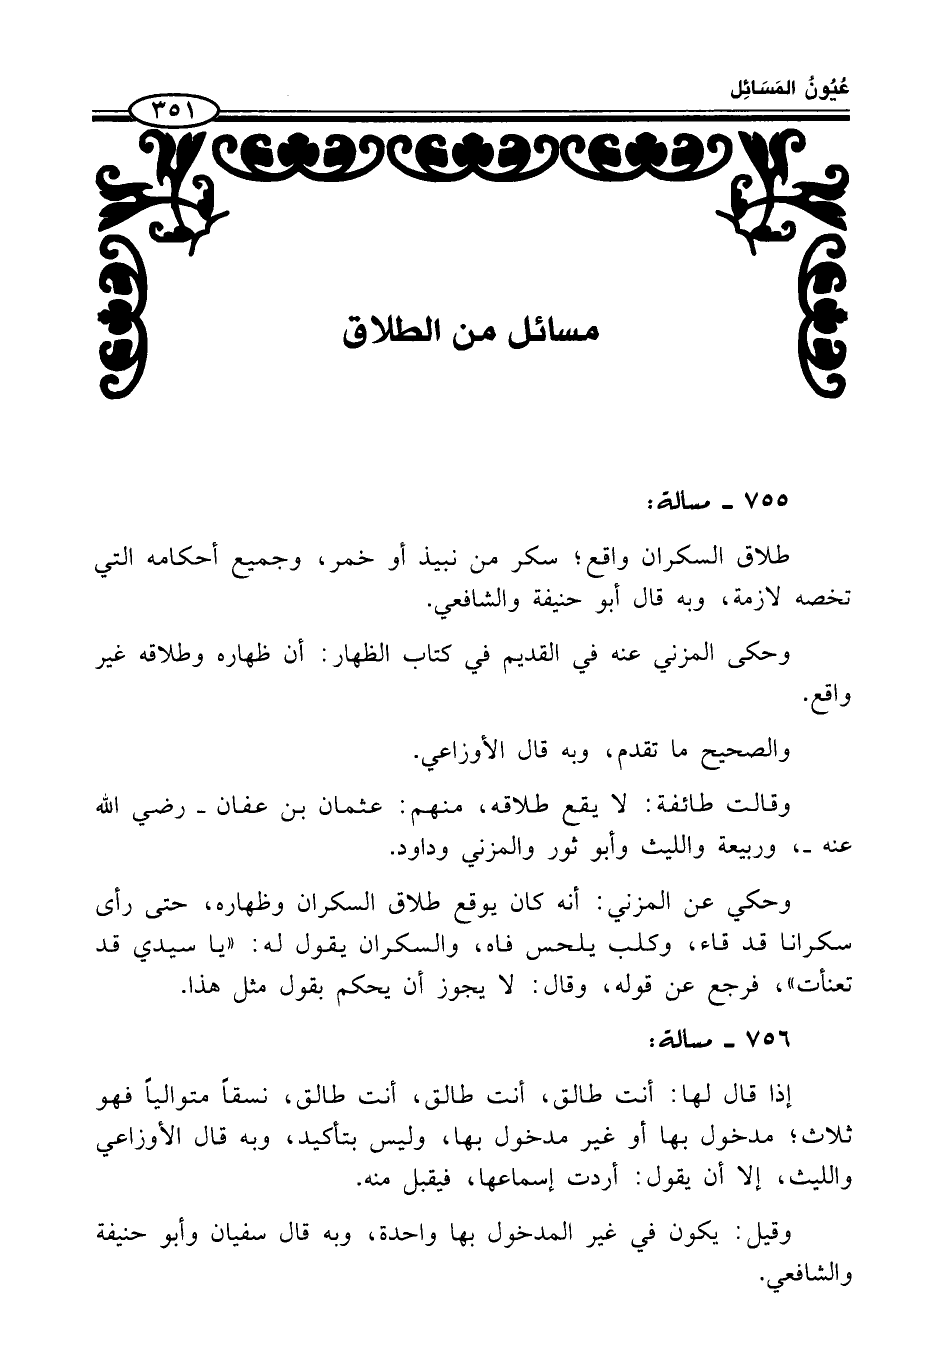 عُيُونُ المَسَائِل
٣٥١
مسائل من الطلاق
٧٥٥ ـ مسألة:
طلاق السكران واقع؛ سكر من نبيذ أو خمر، وجميع أحكامه التي
تخصه لازمة، وبه قال أبو حنيفة والشافعي.
وحكى المزني عنه في القديم في كتاب الظهار: أن ظهاره وطلاقه غير
واقع.
والصحيح ما تقدم، وبه قال الأوزاعي.
وقالت طائفة: لا يقع طلاقه، منهم: عثمان بن عفان ـ رضي الله
عنه ـ، وربيعة والليث وأبو ثور والمزني وداود.
وحكي عن المزني: أنه كان يوقع طلاق السكران وظهاره، حتى رأى
سكرانا قد قاء، وكلب يلحس فاه، والسكران يقول له: «يا سيدي قد
تعنأت»، فرجع عن قوله، وقال: لا يجوز أن يحكم بقول مثل هذا.
٧٥٦ ـ مسالة:
إذا قال لها: أنت طالق، أنت طالق، أنت طالق، نسقاً متوالياً فهو
ثلاث؛ مدخول بها أو غير مدخول بها، وليس بتأكيد، وبه قال الأوزاعي
والليث، إلا أن يقول: أردت إسماعها، فيقبل منه.
وقيل: يكون في غير المدخول بها واحدة، وبه قال سفيان وأبو حنيفة
والشافعي.